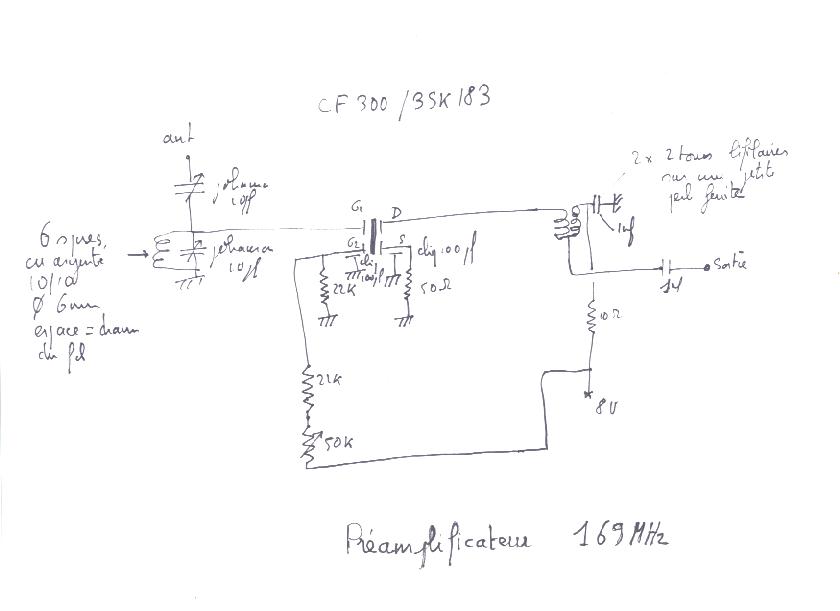 CF 300 / 3SK183
ant
johanson
10pf
G1
D
G2
S
2 x 2 tours bifilaires
sur un petit
pot ferrite
1nf
6 spires,
cu argenté
10/10
Ø 6mm
espace = diam
du fil
johanson
10pf
chip
100pf
chip 100pf
22K
50Ω
Sortie
1nf
10Ω
22K
8V
50K
Préamplificateur 169MHz